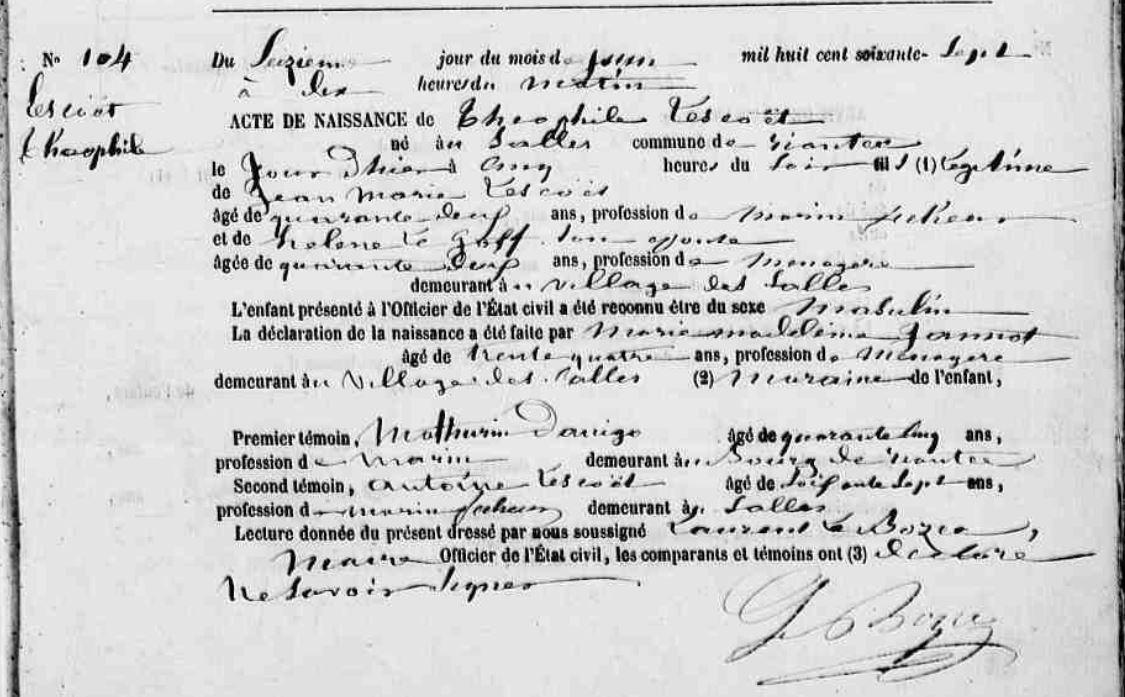 N° 104
Lescöet
théophile
Du Seizieme jour du mois de juin mil huit cent soixante- Sept
à dix heures du matin
ACTE DE NAISSANCE de Théophile Lescoët
né au Salles commune de riantec
le jour d'hier à cinq heures du soir fils (1) légitime
de Jean Marie Lescoët
âgé de quarante deux ans, profession de marin pecheur
et de helene Le Goff son epouse
âgée de quarante deux ans, profession de menagere
demeurant au village des Salles
L'enfant présenté à l'Officier de l'État civil a été reconnu être du sexe masculin
La déclaration de la naissance a été faite par marie madeleine
âgé de trente quatre ans, profession de menagere
demeurant au village des Salles (2) maraine de l'enfant,
Premier témoin, Mathurin âgé de quarante cinq ans,
profession de marin demeurant au Bourg de riantec
Second témoin, antoine Lescoët âgé de Soixante Sept ans,
profession de marin pecheur demeurant à Salles
Lecture donnée du présent dressé par nous soussigné Laurent Le Bozec,
Maire Officier de l'État civil, les comparants et témoins ont (3) declaré
Ne Savoir Signer
Le Bozec